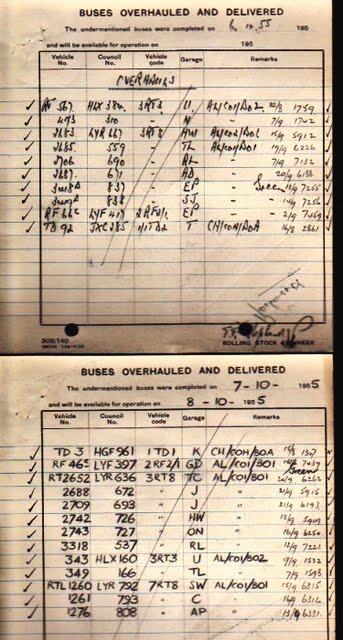 BUSES OVERHAULED AND DELIVERED
The undermentioned buses were completed on 6.10.55 195
and will be available for operation on 195
Vehicle No. Council No. Vehicle code Garage Remarks
OVERHAULS
567 HLX 384 3RT3 U AL/CO1/BO2 1759
310 - N - 7/9 1742
3683 LYR 667 3RT8 AL/CO2/BO1 15/9 5912
3685 559 - TL AL/CO2/BO1 19/9 6226
3706 690 - RL - 7/9 7132
3687 671 - - 20/9 6188
837 - EP Green 7255
838 - SJ - 14/9 7256
RF LYF 417 2RF2/1 EP - 2/9 7459
TD 92 JXC 285 1/1TD2 T CH/COH/BOA 16/8 2861
ROLLING STOCK ENGINEER
BUSES OVERHAULED AND DELIVERED
The undermentioned buses were completed on 7-10- 1955
and will be available for operation on 8-10- 1955
Vehicle No. Council No. Vehicle code Garage Remarks
TD 3 HGF961 1TD1 K CH/COH/BOA 1307
RF 465 LYF397 2RF2/1 GD AL/CO1/BO1 7439
Green
RT2652 LYR 636 3RT8 TC AL/CO1/BO1 20/9 6262
2688 672 " J " 21/9 5915
2709 693 " J " 21/9 6193
2742 726 " HW " 12/9 5909
2743 727 " ON " 16/9 6250
3318 537 " RL " 12/9 7221
343 HLX 160 3RT3 U AL/CO1/BO2 9/9 1522
349 166 " TL " 7/9 1598
RTL1260 LYR 792 7RT8 SW AL/CO1/BO1 15/9 6315
1261 793 " C " 16/9 6316
1276 808 " AP " 13/9 6331